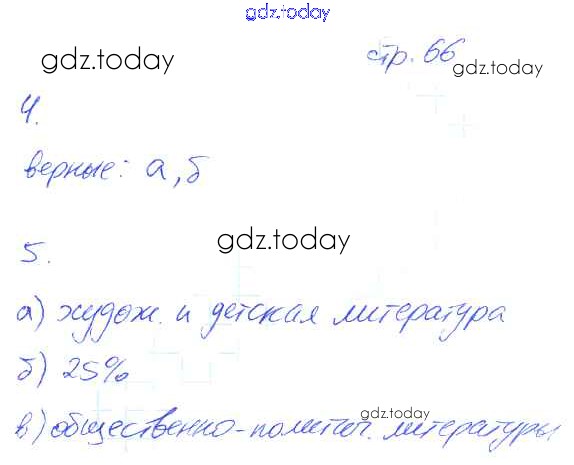 gdz.today
gdz.today
стр. 66
gdz.today
4.
верные: а, б
5.
gdz.today
а) худож. и детская литература
б) 25%
gdz.today
в) общественно-полит. литературы